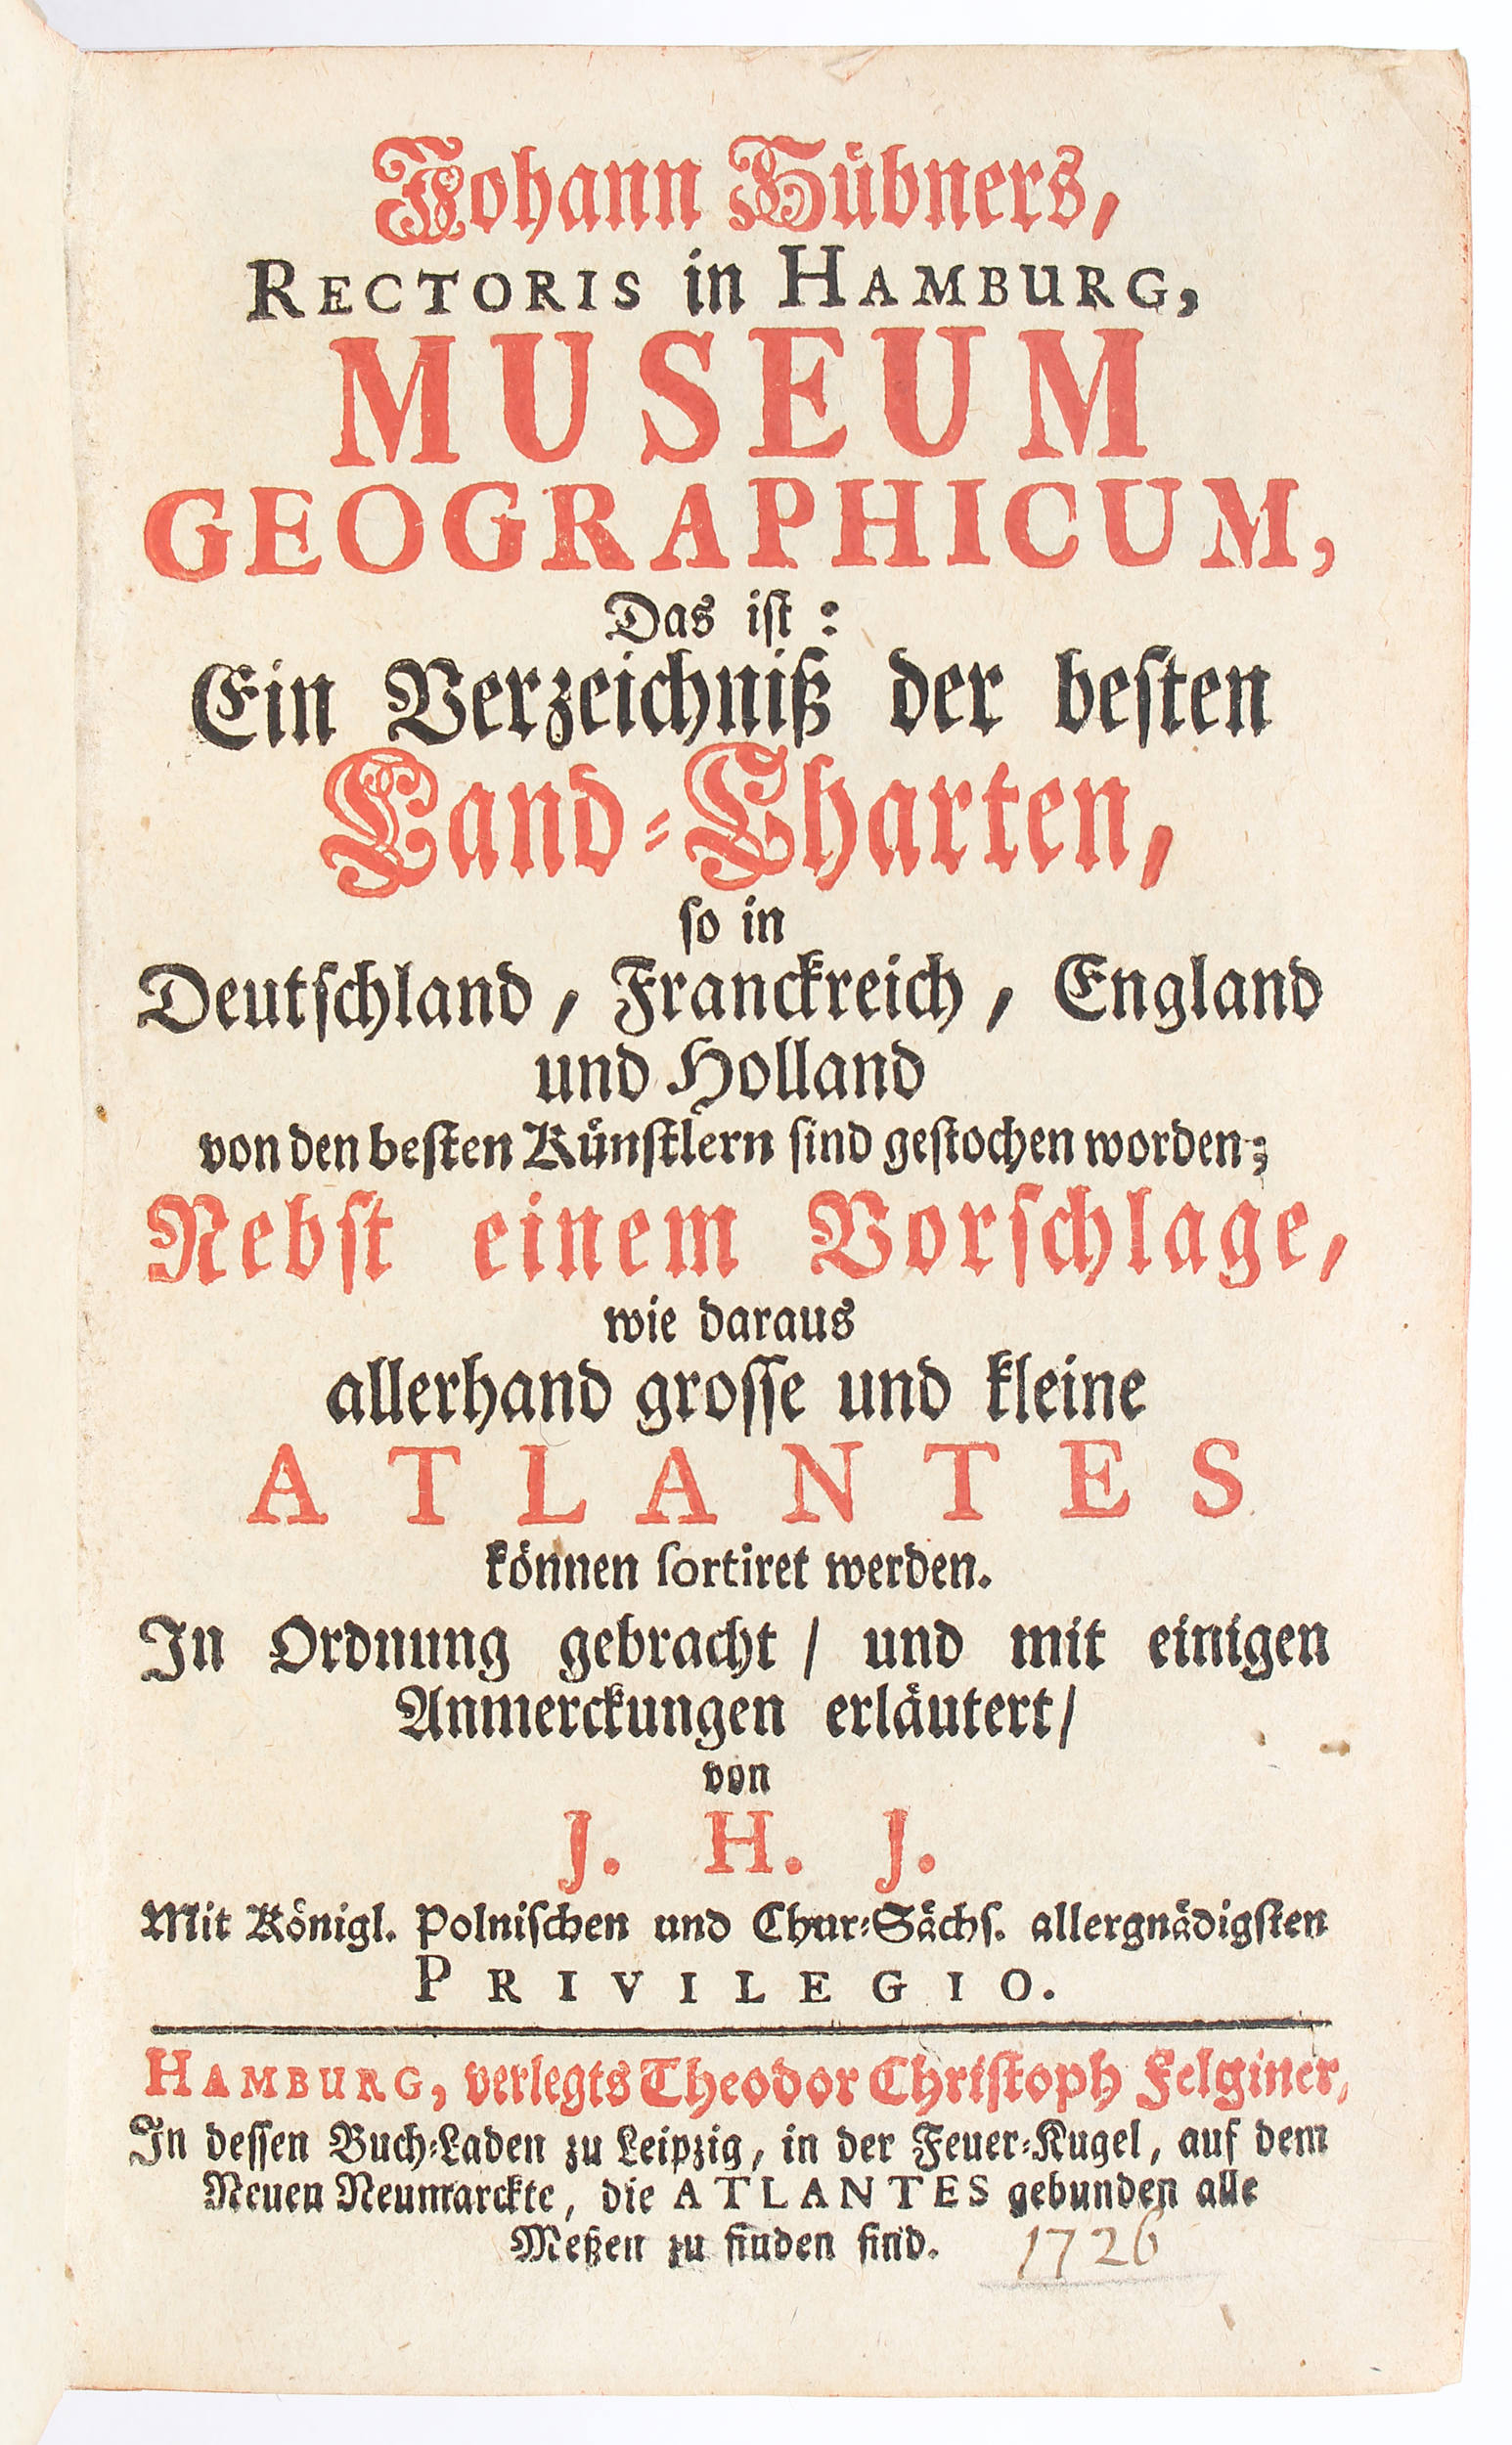 Johann Hübners,
RECTORIS in HAMBURG,
MUSEUM
GEOGRAPHICUM,
Das ist:
Ein Verzeichniß der besten
Land-Charten,
so in
Deutschland, Franckreich, England
und Holland
von den besten Künstlern sind gestochen worden;
Nebst einem Vorschlage,
wie daraus
allerhand grosse und kleine
ATLANTES
können sortiret werden.
In Ordnung gebracht / und mit einigen
Anmerckungen erläutert /
von
J. H. J.
Mit Königl. Polnischen und Chur-Sächs. allergnädigsten
PRIVILEGIO.
HAMBURG, verlegts Theodor Christoph Felginer,
In dessen Buch-Laden zu Leipzig, in der Feuer-Kugel, auf dem
Neuen Neumarckte, die ATLANTES gebunden alle
Meßen zu finden sind. 1726